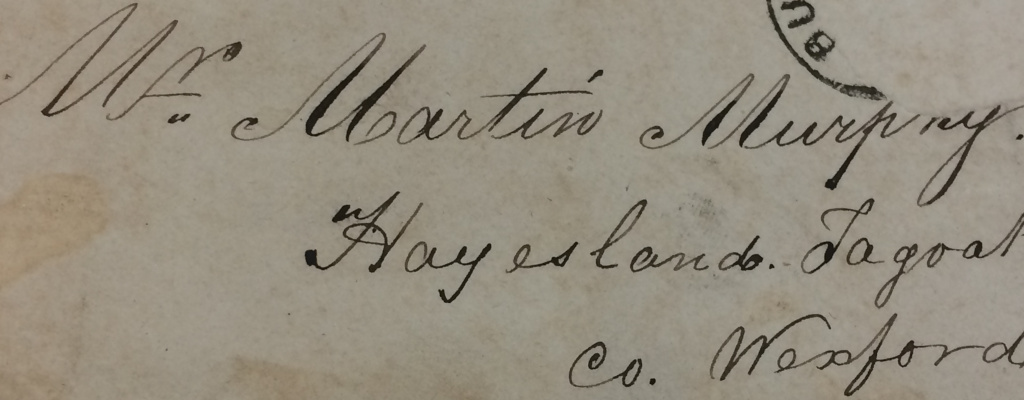 BU
Mr. Martin Murphy.
Hayesland. Tagoat
Co. Wexford